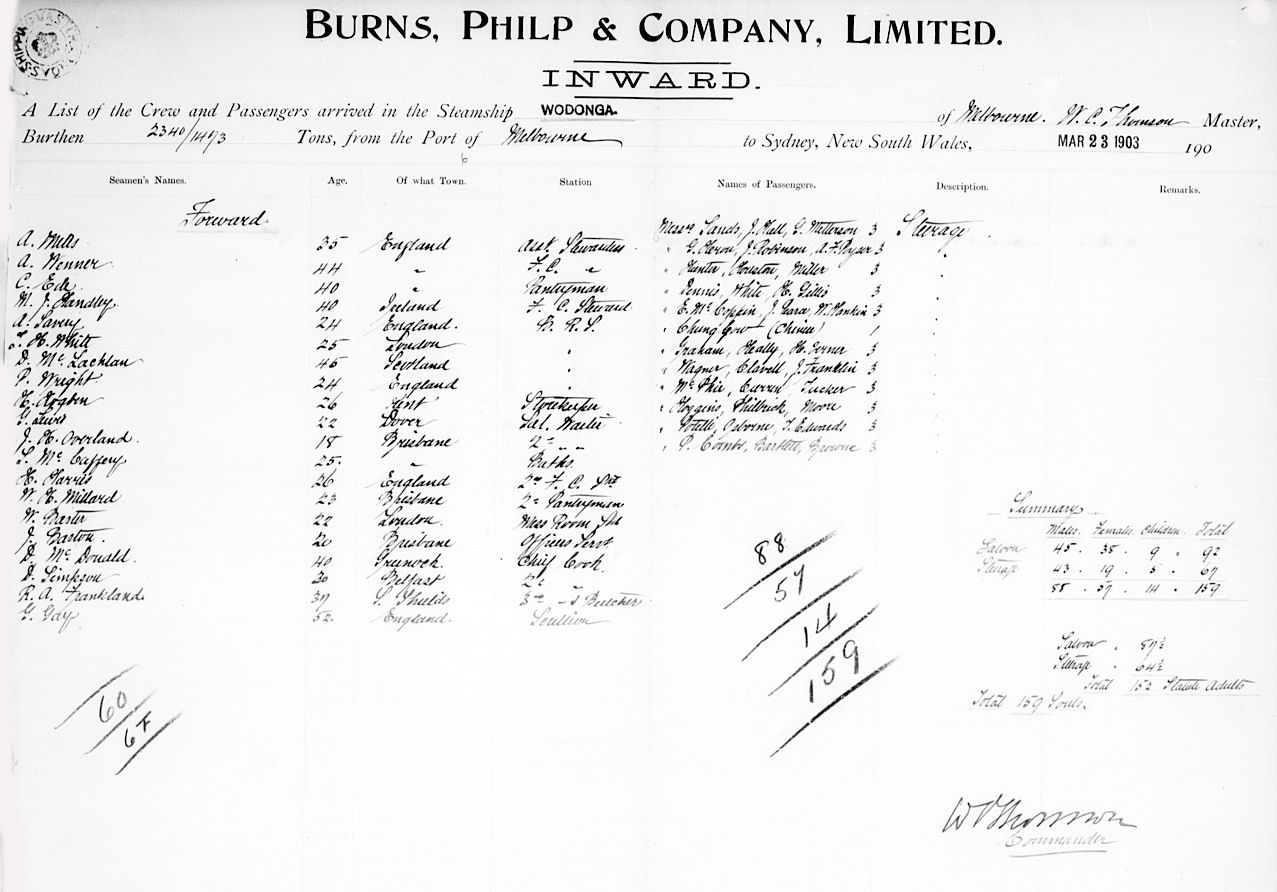 BURNS, PHILP & COMPANY, LIMITED.
INWARD.
A List of the Crew and Passengers arrived in the Steamship WODONGA. of Melbourne. W. C. Thomson Master,
Burthen 2340/1473 Tons, from the Port of Melbourne to Sydney, New South Wales, MAR 23 1903 190
Seamen's Names. Age. Of what Town. Station Names of Passengers. Description. Remarks.
Forward
A. Mills 35 England Asst. Stewardess
A. Wenner 44 " F.C. "
C. Ede 40 " Pantryman
M. J. Handley 40 Ireland F. C. Steward
A. Savery 24 England. B. R. S.
H. White 25 London "
D. McLachlan 45 Scotland "
P. Wright 24 England "
H. Hogben 26 Storekeeper
G. Lewis 22 Dover Sal. Waiter
J. H. Overland. 18 Brisbane 2nd " "
McCaffery 25. " Baths.
H. Harris 26 England 2nd F. C. Std
W. H. Millard 23 Brisbane 2nd Pantryman
W. Baxter 22 London. Mess Room Std
J. Barton. 20 Brisbane Officers Servt
D. McDonald. 40 Greenock. Chief Cook.
D. Simpson 30 Belfast 2nd "
R. A. Frankland 37 S. Shields 3rd " & Butcher
G. Gay 52. England. Scullion
60
67
Messrs Sands, J. Hall, G. Watterson 3 Steerage
" G. Heron, J. Robinson, A. F. 3 "
" Hunter, Houston, Miller 3 "
" Dennis, White, H. Gillis 3 "
" E. McCoppin, J. Gara, W. Rankin 3 "
" Chung Gow (Chinese) 1 "
" Graham, Healy, H. Verner 3 "
" Wagner, Clavell, J. Franklin 3 "
" McPhie, Curren, Tucker 3 "
" Hoggins, Philbrick, Moore 3 "
" Osborne, T. Edwards 3 "
" P. Coombs, Bartlett, Browne 3 "
88
57
14
159
Summary
Males. Females. Children. Total
Saloon 45 . 38 . 9 . 92
Steerage 43 . 19 . 5 . 67
88 . 57 . 14 . 159
Saloon . 87½
Steerage . 64½
Total 152 Statute Adults
Total 159 Souls.
W C Thomson
Commander